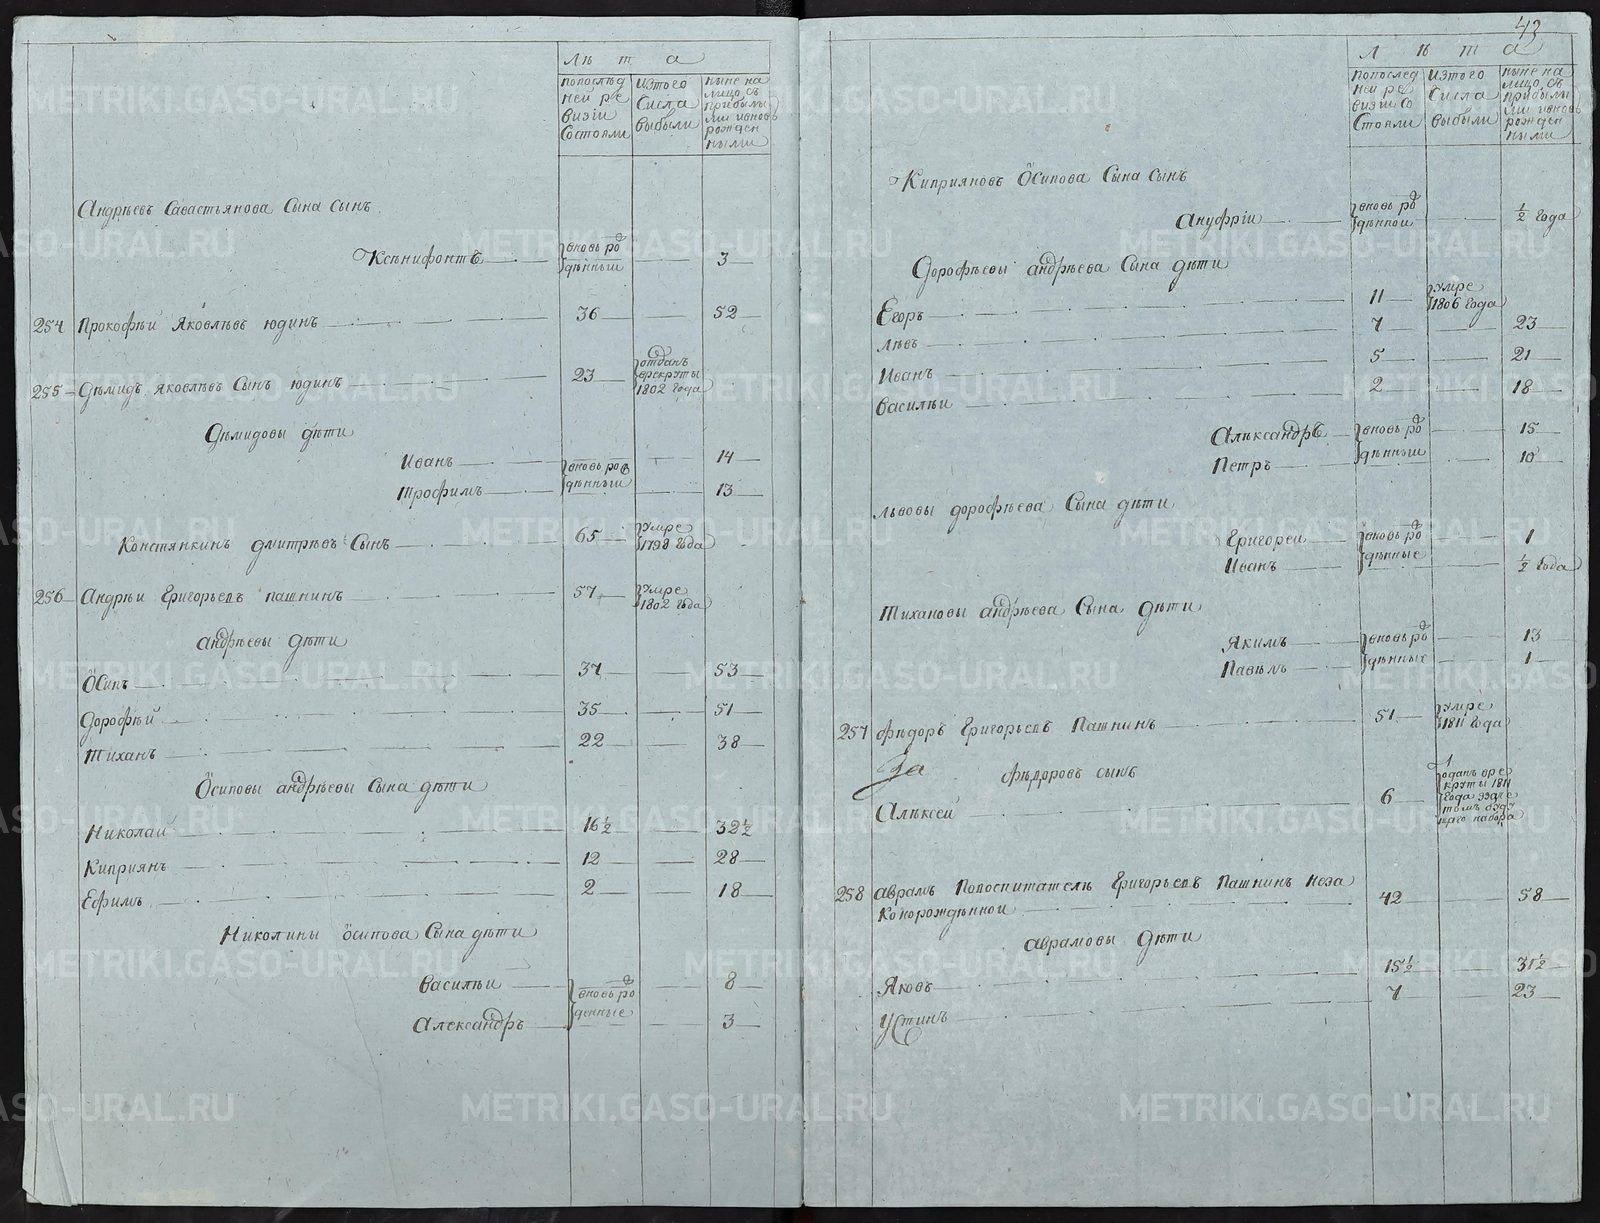 Лѣта
попослѣд
ней ре
визіи
Состояли
изтого
Числа
выбыли
ныне на
лицо съ
прибылы
ми ивновь
рожден
ными
Андрѣевъ Савастьянова Сына сынъ
Ксѣнифонтъ вновь ро
дѣнный 3
254 Прокофѣй Яковлѣвъ юдинъ 36 52
255 Дѣмидъ яковлѣвъ Сынъ юдинъ 23 отданъ
врекруты
1802 года
Дѣмидовы дѣти
Иванъ вновь ро 14
Трофимъ дѣнныи 13
Констянкинъ дмитрѣвъ Сынъ 65 умре
1798 года
256 Андрѣи Григорьевъ пашнинъ 57 умре
1802 года
андрѣевы дѣти
Осипъ 37 53
дорофѣй 35 51
Тиханъ 22 38
Осиповы андрѣевы Сына дѣти
Николай 16½ 32½
Киприянъ 12 28
Ефимъ 2 18
Николины осипова Сына дѣти
Василѣи вновь ро 8
Александръ денные 3
43
Лѣта
попослед
ней ре
визіи со
Стояли
изтого
Числа
выбыли
ныне на
лицо съ
прибылы
ми ивновь
рожден
ными
Киприяновъ Осипова Сына сынъ
Ануфріи вновь ро
дѣнной ½ года
Дорофѣевы андрѣева Сына дѣти
Егоръ 11 умре
1806 года
лѣвъ 7 23
Иванъ 5 21
василѣи 2 18
Алѣксандръ вновь ро 15
Петръ дѣнныи 10
львовы дорофѣева Сына дѣти
Григореи вновь ро 1
Иванъ дѣнные ½ года
Тихановы андрѣева Сына дѣти
Якимъ вновь ро 13
Павѣлъ дѣнные 1
257 Фѣдоръ Григорьевъ Пашнинъ 51 умре
1811 года
За Фѣдоровъ сынъ
Алѣксѣй 6 оданъ вре
круты 1811
года
набора
258 аврамъ Попоспитателѣ Григорьевъ Пашнинъ Неза
конорождѣнной 42 58
аврамовы Дѣти
Яковъ 15½ 31½
Устинъ 7 23
METRIKI.GASO-URAL.RU